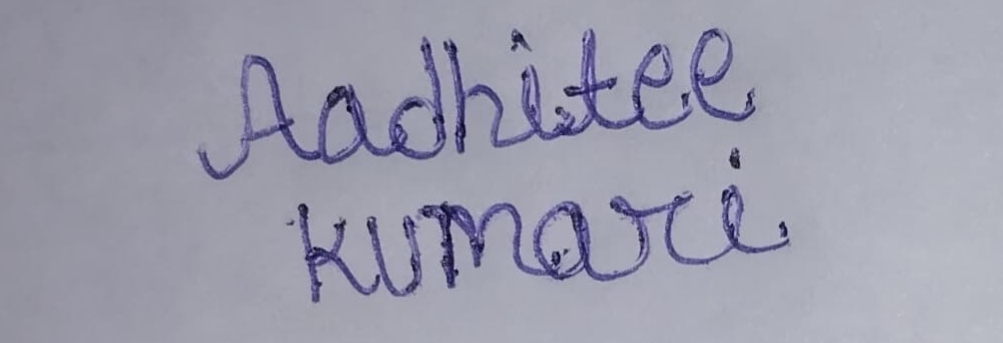 Aadhitee
Kumari